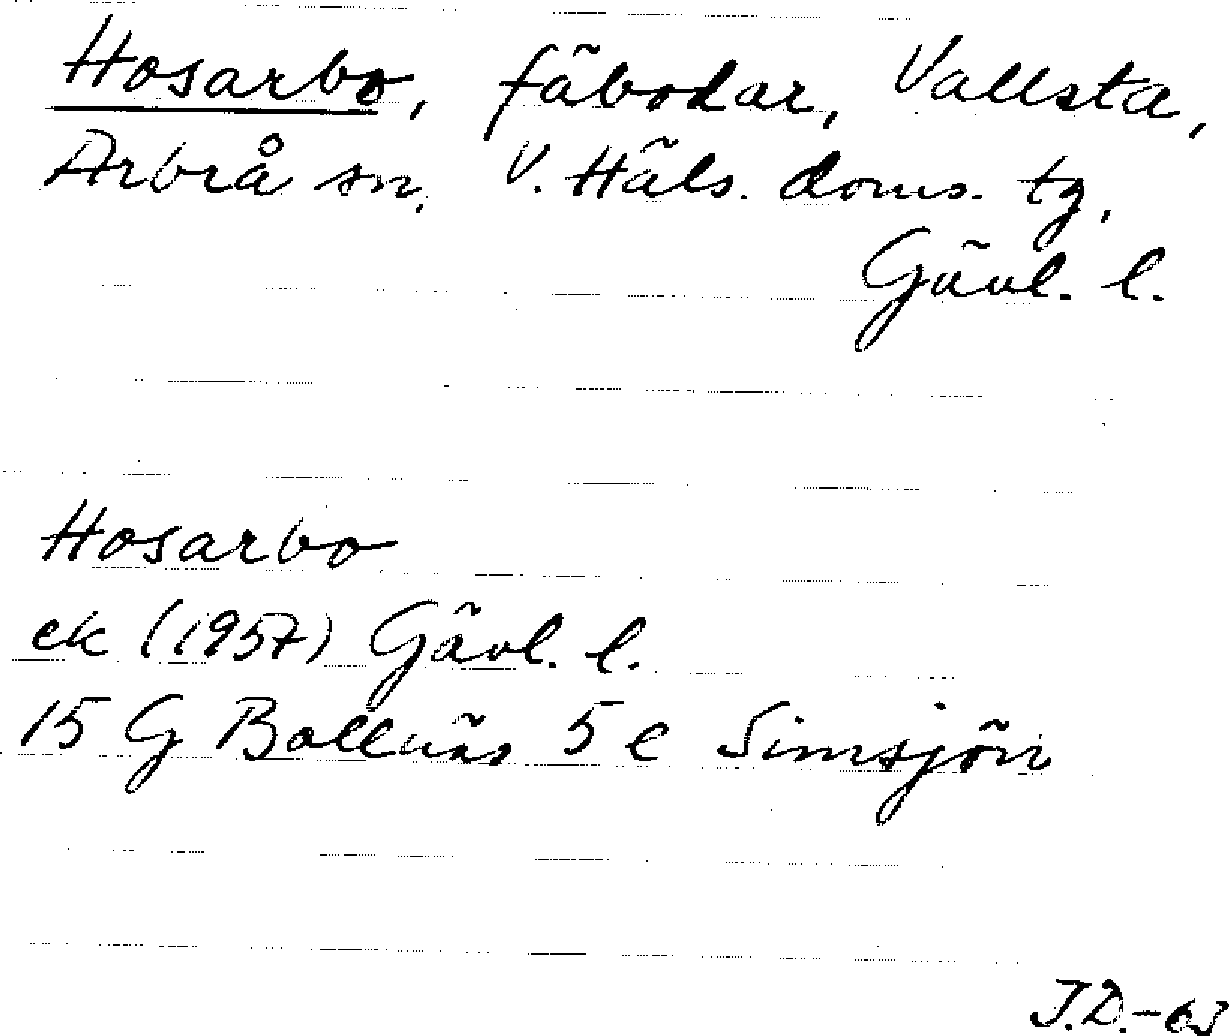 Hosarbo, fäbodar, Vallsta,
Arbrå sn, V. Häls. doms. tg,
Gävl. l.
Hosarbo
ek (1957) Gävl. l.
15 G Bollnäs 5 e Simsjön
J.D.-63